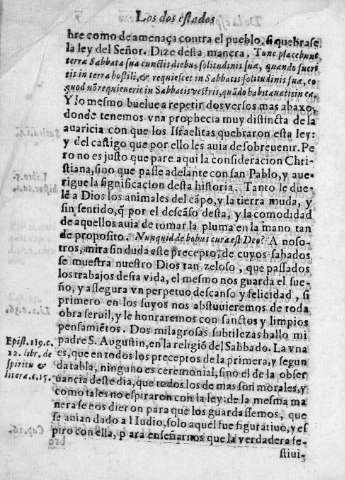 Los dos estados
bre como de amenaça contra el pueblo, si quebrase
la ley del Señor. Dize desta manera. Tunc placebunt
terræ Sabbata sua cunctis diebus solitudinis suæ, quando fueri
tis in terra hostili, & requiescet in Sabbatis solitudinis suæ, eo
quod nõ requieuerit in Sabbatis vestris, quãdo habitabatis in ea.
Y lo mesmo buelue a repetir dos versos mas abaxo,
donde tenemos vna prophecia muy distincta de la
auaricia con que los Israelitas quebraron esta ley:
y del castigo que por ello les auia de sobreuenir. Pe
ro no es justo que pare aqui la consideracion Chri-
stiana, sino que passe adelante con san Pablo, y aue-
rigue la significacion desta historia. Tanto le due-
lẽ a Dios los animales del cãpo, y la tierra muda, y
sin sentido, q̃ por el descãso desta, y la comodidad
de aquellos auia de tomar la pluma en la mano tan
de proposito? Nunquid de bobus cura est Deo? A noso-
tros, mira sin duda este precepto, de cuyos sabados
se muestra nuestro Dios tan zeloso, que passados
los trabajos desta vida, el mesmo nos guarda el sue-
ño, y assegura vn perpetuo descanso y felicidad, si
primero en los suyos nos abstuuieremos de toda
obra seruil, y le honraremos con sanctos y limpios
pensamiẽtos. Dos milagrosas subtilezas hallo mi
padre S. Augustin, en la religiõ del Sabbado. La vna
es, que en todos los preceptos de la primera, y segun
da tabla, ninguno es ceremonial, sino el de la obser
uancia deste dia, que todos los de mas son morales, y
como tales no espiraron con la ley: de la mesma ma
nera se nos dieron para que los guardassemos, que
se auian dado al Iudio, solo aquel fue figuratiuo, y es
piro con ella, para enseñarnos que la verdadera fe-
stiui-
Epist. 119. c.
12. libr. de
spiritu &
litera. c. 15.